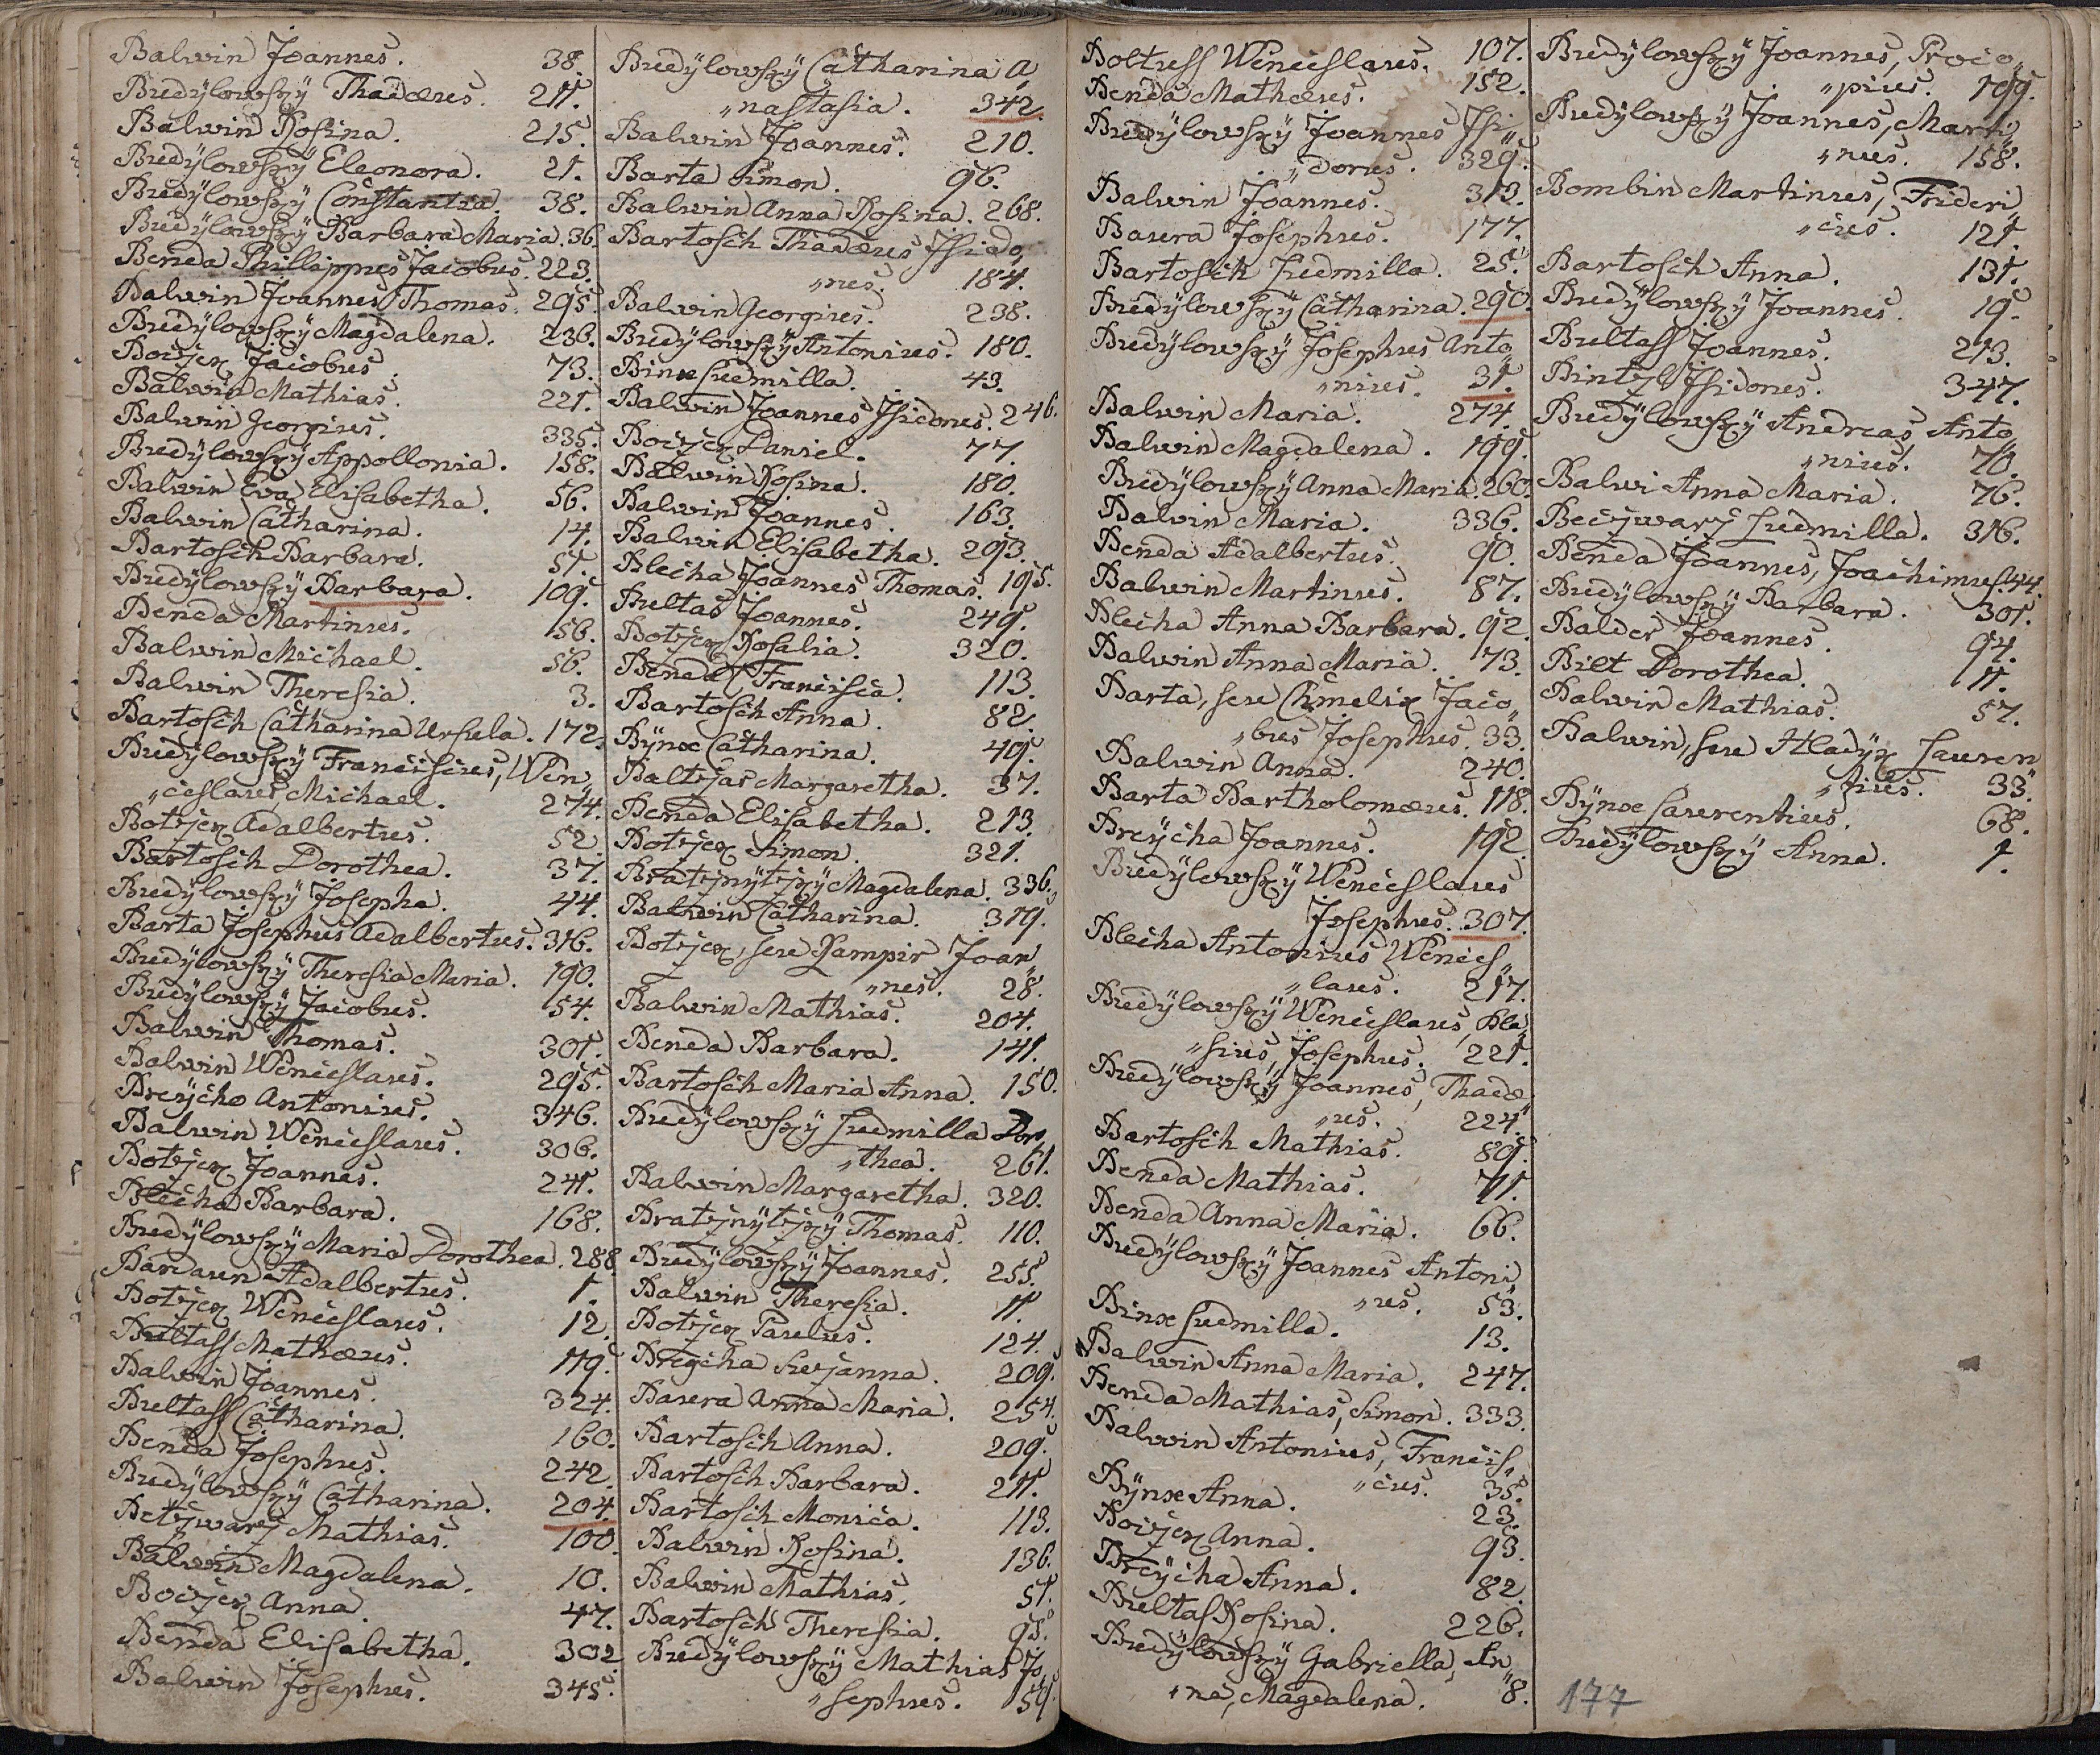 Balwin Joannes. 38.
Budÿlowskÿ Thadæus. 211.
Balwin Rosina. 215.
Budÿlowskÿ Eleonora. 21.
Budÿlowskÿ Constantia. 38.
Budÿlowskÿ Barbara Maria. 36.
Benda Phillippus Jacobus. 223.
Balwin Joannes Thomas. 295.
Budÿlowskÿ Magdalena. 236.
Boczek Jacobus. 73.
Balwin Mathias. 221.
Balwin Georgius. 335.
Budÿlowskÿ Appollonia. 158.
Balwin Eva Elisabetha. 56.
Balwin Catharina. 14.
Bartosch Barbara. 51.
Budÿlowskÿ Barbara. 109.
Benda Martinus. 156.
Balwin Michael. 56.
Balwin Theresia. 3.
Bartosch Catharina Ursula. 172.
Budÿlowskÿ Franciscus, Wen
„ceslaus, Michael. 274.
Botzek Adalbertus. 52.
Bartosch Dorothea. 37.
Budÿlowskÿ Josepha. 44.
Barta Josephus Adalbertus. 316.
Budÿlowskÿ Theresia Maria. 190.
Budÿlowskÿ Jacobus. 154.
Balwin Thomas. 301.
Balwin Wenceslaus. 295.
Breÿcha Antonius. 346.
Balwin Wenceslaus. 306.
Botzek Joannes. 241.
Blecha Barbara. 168.
Budÿlowskÿ Maria Dorothea. 288.
Adalbertus. 1.
Botzek Wenceslaus. 12.
Bultass Mathæus. 179.
Balwin Joannes. 324.
Bultass Catharina. 160.
Benda Josephus. 242.
Budÿlowskÿ Catharina. 204.
Betzwarz Mathias. 100.
Balwin Magdalena. 10.
Boczek Anna. 47.
Benda Elisabetha. 302.
Balwin Josephus. 345.
Budÿlowskÿ Catharina A
„nastasia. 342.
Balwin Joannes. 210.
Barta Simon. 96.
Balwin Anna Rosina. 268.
Bartosch Thadæus Isido
„rus. 184.
Balwin Georgius. 238.
Budÿlowskÿ Antonius. 180.
Binx Ludmilla. 43.
Balwin Joannes Isidorus. 246.
Boczek Daniel. 77.
Balwin Rosina. 180.
Balwin Joannes. 163.
Balwin Elisabetha. 293.
Blecha Joannes Thomas. 195.
Bultas Joannes. 249.
Botzek Rosalia. 320.
Benda Francisca. 113.
Bartosch Anna. 82.
Bÿnx Catharina. 49.
Baltzar Margaretha. 37.
Benda Elisabetha. 213.
Botzek Simon. 321.
Bratznÿtzkÿ Magdalena. 336.
Balwin Catharina. 319.
Botzek, seu Kampir Joan
„nes. 28.
Balwin Mathias. 204.
Benda Barbara. 141.
Bartosch Maria Anna. 150.
Budÿlowskÿ Ludmilla Doro
„thea. 261.
Balwin Margaretha. 320.
Bratznÿtzkÿ Thomas. 110.
Budÿlowskÿ Joannes. 255.
Balwin Theresia. 11.
Botzek Paulus. 124.
Breÿcha Suzanna. 209.
Baura Anna Maria. 254.
Bartosch Anna. 209.
Bartosch Barbara. 211.
Bartosch Monica. 113.
Balwin Rosina. 136.
Balwin Mathias. 51.
Bartosch Theresia. 95.
Budÿlowskÿ Mathias Jo
„sephus. 159.
Boltuss Wenceslaus. 107.
Benda Mathæus. 152.
Budÿlowskÿ Joannes Isi
„dorus. 329.
Balwin Joannes. 313.
Baura Josephus. 177.
Bartosch Ludmilla. 25.
Budÿlowskÿ Catharina. 290.
Budÿlowskÿ Josephus Anto
„nius. 31.
Balwin Maria. 274.
Balwin Magdalena. 199.
Budÿlowskÿ Anna Maria. 260.
Balwin Maria. 336.
Benda Adalbertus. 90.
Balwin Martinus. 87.
Blecha Anna Barbara. 92.
Balwin Anna Maria. 73.
Barta, seu Chmelix Jaco
„bus Josephus. 33.
Balwin Anna. 240.
Barta Bartholomæus. 118.
Breÿcha Joannes. 192.
Budÿlowskÿ Wenceslaus
Josephus. 307.
Blecha Antonius Wences
„laus. 217.
Budÿlowskÿ Wenceslaus, Bla
„sius, Josephus. 221.
Budÿlowskÿ Joannes, Thadæ
„us. 224.
Bartosch Mathias. 89.
Benda Mathias. 71.
Benda Anna Maria. 66.
Budÿlowskÿ Joannes Antoni
„us. 53.
Binx Ludmilla. 13.
Balwin Anna Maria. 247.
Benda Mathias, Simon. 333.
Balwin Antonius, Francis
„cus. 35.
Bÿnx Anna. 23.
Boczek Anna. 93.
Breÿcha Anna. 82.
Bultas Rosina. 226.
Budÿlowskÿ Gabriella, An
„na, Magdalena. 8.
Budÿlowskÿ Joannes, Proco
„pius. 199.
Budÿlowskÿ Joannes, Marti
„nus. 158.
Bombin Martinus, Frideri
„cus. 121.
Bartosch Anna. 131.
Budÿlowskÿ Joannes. 19.
Bultass Joannes. 213.
Bintzl Isidorus. 347.
Budÿlowskÿ Andreas Anto
„nius. 70.
Balwi Anna Maria. 76.
Beczwarz Ludmilla. 316.
Benda Joannes, Joachimus.
Budÿlowskÿ Barbara. 301.
Balder Joannes. 94.
Bilt Dorothea. 11.
Balwin Mathias. 57.
Balwin, seu Hladÿk Lauren
„tius. 33.
Bÿnx Laurentius. 68.
Budÿlowskÿ Anna. 1.
177